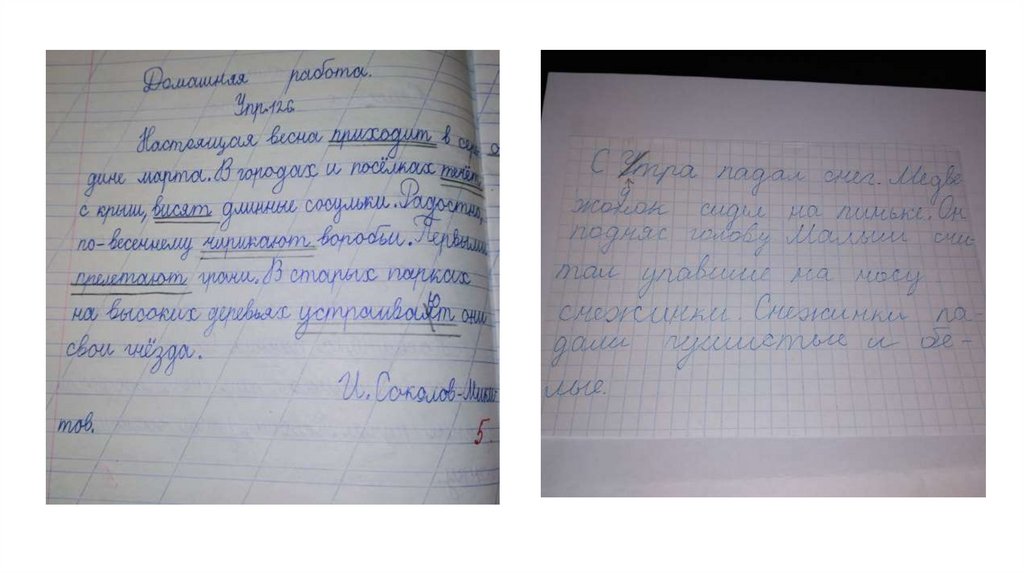 Домашняя работа.
Упр.126
Настоящая весна приходит в сере
дине марта. В городах и посёлках течёт
с крыш, висят длинные сосульки. Радостно,
по-весеннему чирикают воробьи. Первыми
прелетают грачи. В старых парках
на высоких деревьях устраивают они
свои гнёзда.
И. Соколов-Мики-
тов.
5
С Утра падал снег. Медве
жонок сидел на пиньке. Он
подняс голову Малыш счи
тал упавшие на носу
снежинки. Снежинки па-
дали пушистые и бе-
лые.